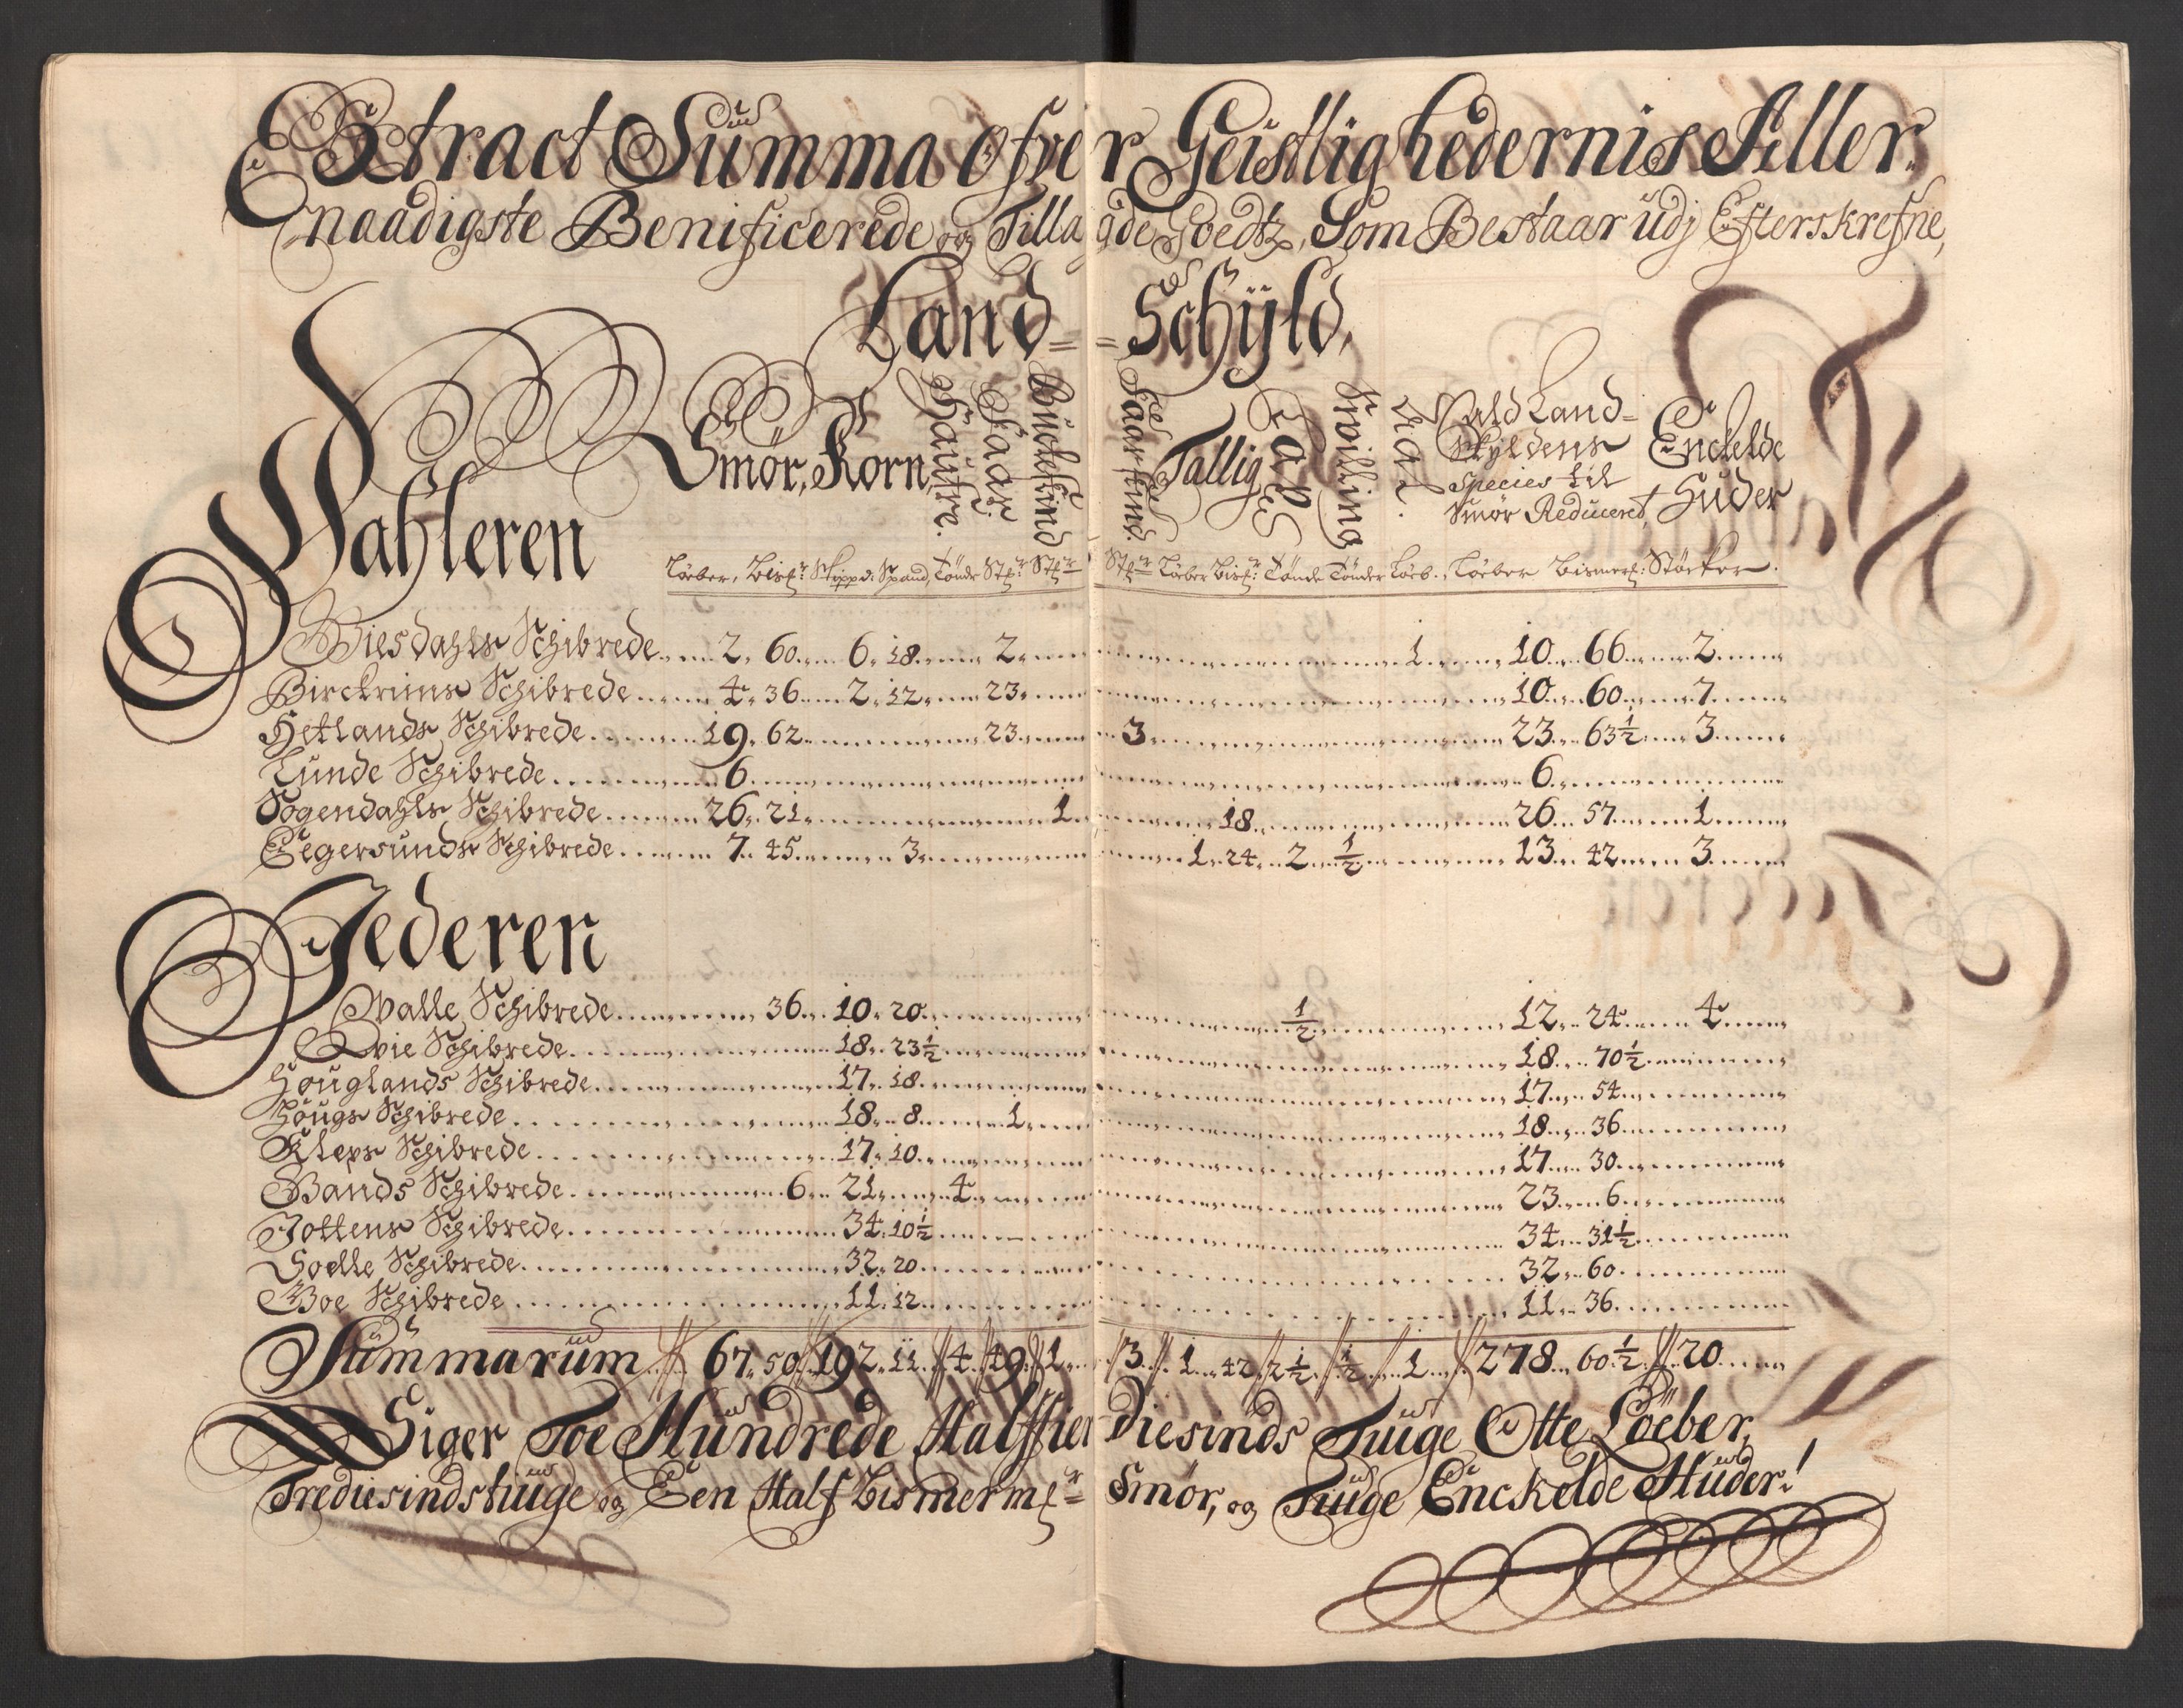 Extract Summa ofver Geistlighedernis Aller
naadigste Benificerede og Tillagde Goedtz, Som Bestaar udj Efterskrefne,
Land= =Schÿld,
Dahleren Smör, Korn, Haufre. Faar. Buckeskind Faar skind. Tallig Salt Trælling Gald Land= Skyldens Species til Smör Reduceret Enckelde Huder
Löeber, Bismr Skippd: Spand, Tönde Stkr Stkr Stkr Löeber Bismr: Tönde Tönder Löeb., Löeber Bismermk: Stöcker.
Biesdahls Schibrede 2. 60. 6. 18. 2. 1. 10. 66. 2.
Birckrims Schibrede 4. 36. 2. 12. 23. 10. 60. 7.
Hetlands Schibrede 19. 62. 23. 3. 23. 63½ 3.
Lunde Schibrede 6. 6.
Sogendahls Schibrede 26. 21. 1. 18. 26. 57. 1.
Eegersunds Schibrede 7. 45. 3. 1. 24. 2. ½ 13. 42. 3.
Jederen
Walle Schibrede 36. 10. 20. ½ 12. 24. 4.
Qvie Schibrede 18. 23½ 18. 70½
Höuglands Schibrede 17. 18. 17. 54.
Höugs Schibrede 18. 8. 1. 18. 36.
Kleps Schibrede 17. 10. 17. 30.
Bands Schibrede 6. 21. 4. 23. 6.
Jottens Schibrede 34. 10½ 34. 31½
Soelle Schibrede 32. 20. 32. 60.
Boe Schibrede 11. 12. 11. 36.
Summarum 67. 50. 192. 11. 4. 49. 1. 3. 1. 42. 2½ ½ 1. 278. 60.½ 20.
Siger Toe Hundrede Halffierdiesinds Tiuge Otte Löeber,
Trediesindstiuge og Een Half Bismermkr= Smör, og Tiuge Enckelde Huder!